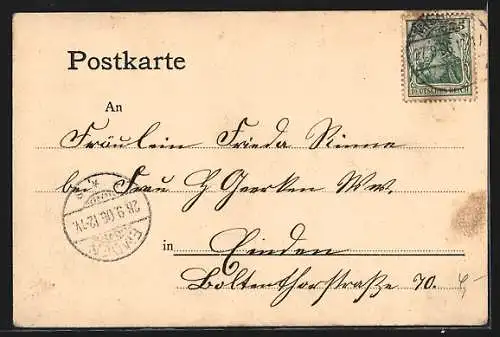 Postkarte
DEUTSCHES REICH
An
Fräulein Frieda Rinne
bei Frau H Geerken Ww.
28.9.06.12-1V.
EMDEN
in Emden
Boltenthorstraße 70.